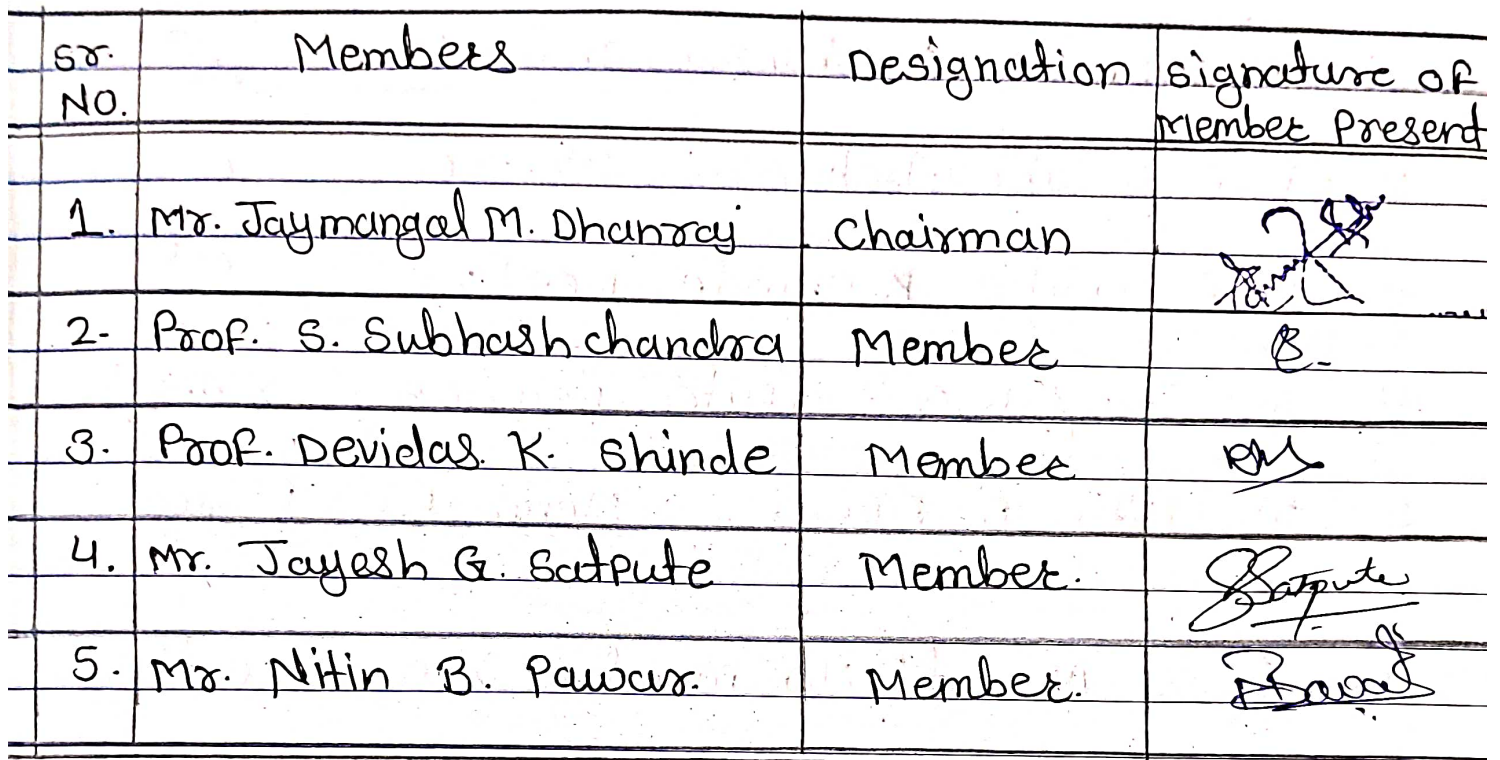 Sr. Members Designation Signature of
No. Member Present
1. Mr. Jaymangal M. Dhanraj Chairman
2- Prof. S. Subhash chandra Member
3. Prof. Devidas. K. Shinde Member
4. Mr. Jayesh G. Satpute Member. Satpute
5. Mr. Nitin B. Pawar. Member.